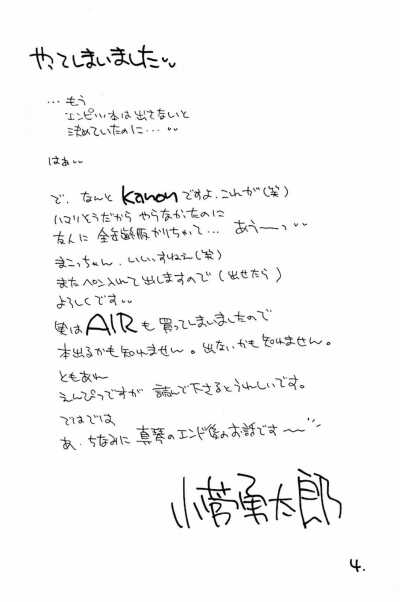 やってしまいました〜
…もう
エンピツ本は出さないと
決めていたのに…〜
はぁ〜
で、なんと Kanon ですよ、これが(笑)
ハマりそうだから やらなかったのに
友人に 全年齢版 かりちゃって… あうーっ〜
まこっちゃん、いいっすねえ(笑)
またペン入れて出しますので(出せたら)
よろしくです〜
実は AIR も 買ってしまいましたので
本出るかも知れません。出ないかも知れません。
ともあれ
えんぴつですが 読んで下さるとうれしいです。
ではでは、
あ、ちなみに 真琴のエンド後のお話です〜
小菅勇太郎
4.